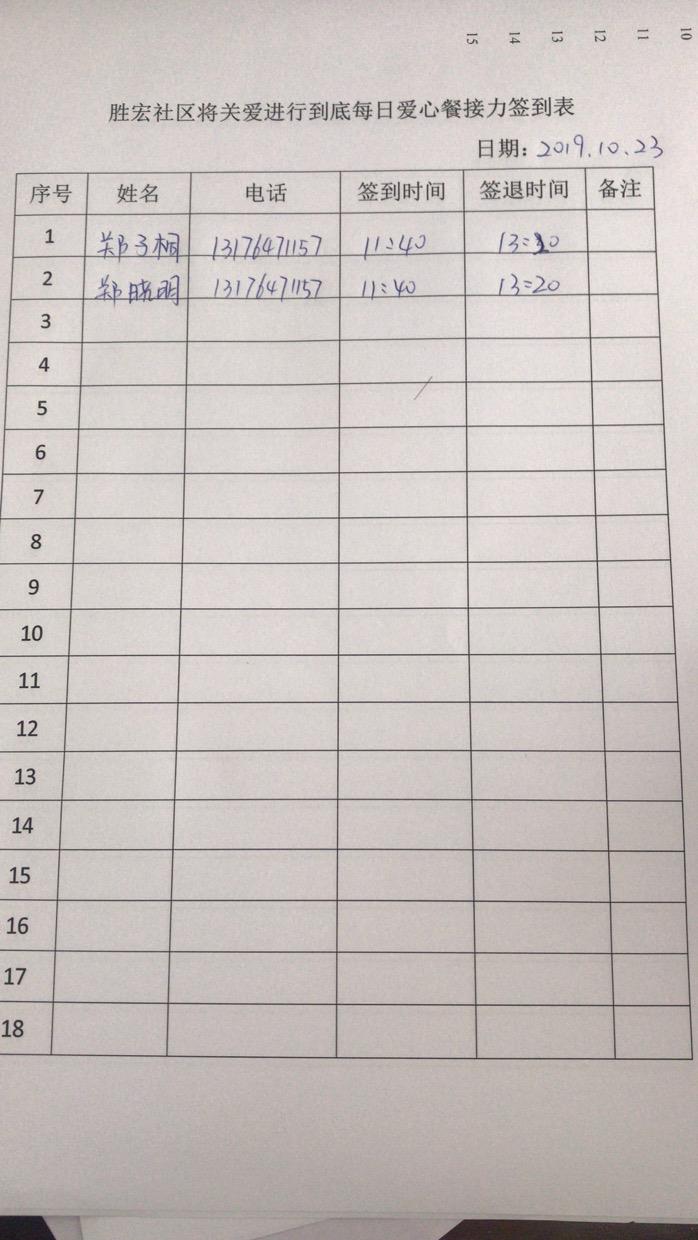 15 14 13 12 11 10
胜宏社区将关爱进行到底每日爱心餐接力签到表
日期：2019.10.23
序号 姓名 电话 签到时间 签退时间 备注
1 郑子桐 13176471157 11:40 13:20
2 郑晓明 13176471157 11:40 13:20
3
4
5
6
7
8
9
10
11
12
13
14
15
16
17
18